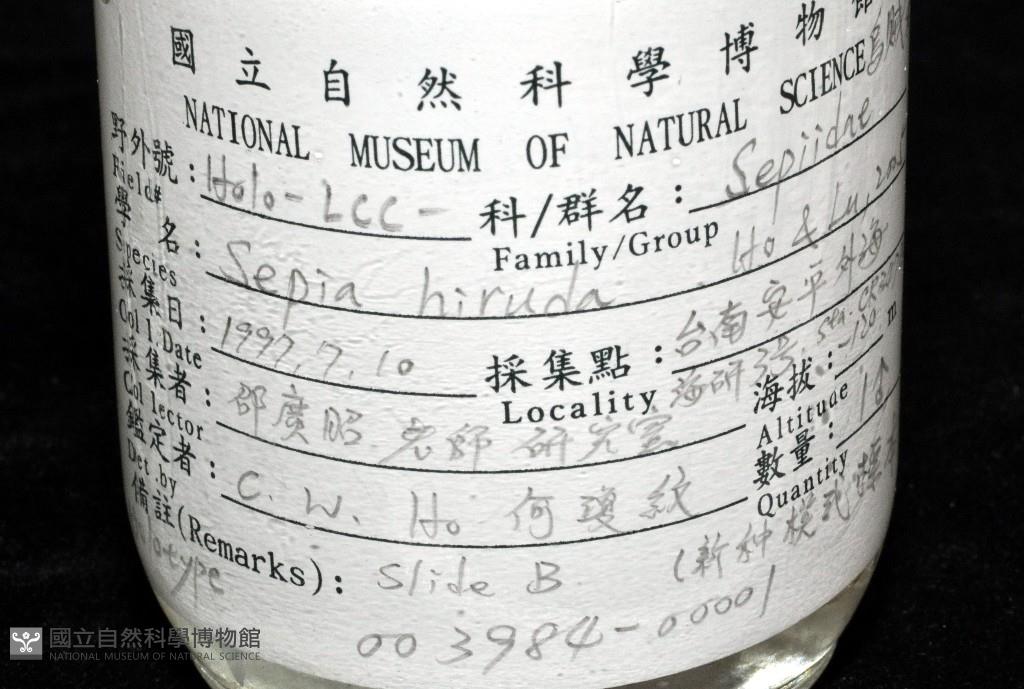 國立自然科學博物館
NATIONAL MUSEUM OF NATURAL SCIENCE
野外號: Holo-LCC- 科/群名: Sepiidae 烏賊
Field# Family/Group
學名: Sepia hiruda Ho & Lu, 2005
Species
採集日: 1997.7.10 採集點: 台南安平外海
Coll.Date Locality 海研3號, sta. 海拔: -120 m
採集者: 邵廣昭 老師 研究室 Altitude
Collector 數量: 1♂
鑑定者: C. W. Ho 何瓊紋 Quantity
Det.by
備註(Remarks): Slide B. (新种模式標
Holotype
003984-00001
國立自然科學博物館
NATIONAL MUSEUM OF NATURAL SCIENCE